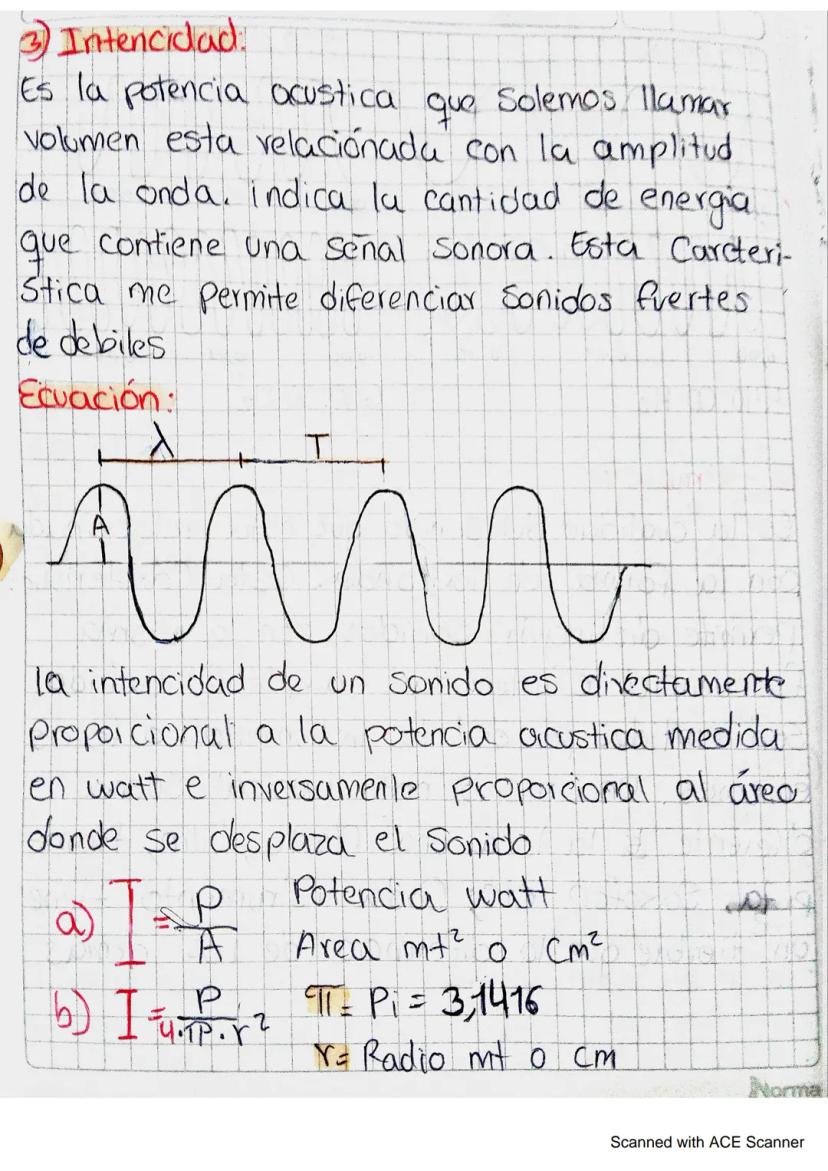 3) Intencidad:
Es la potencia acustica que solemos llamar
volumen esta relaciónada con la amplitud
de la onda. indica la cantidad de energia
que contiene una señal sonora. Esta Carcteri-
stica me permite diferenciar sonidos fuertes
de debiles
Ecuación:
λ T
A
la intencidad de un sonido es directamente
proporcional a la potencia acustica medida
en watt e inversamente proporcional al áreo
donde se desplaza el sonido
a) I = P/A Potencia watt
Area mt² o cm²
b) I = P/4.π.r² π = Pi = 3,1416
r = Radio mt o cm
Norma
Scanned with ACE Scanner